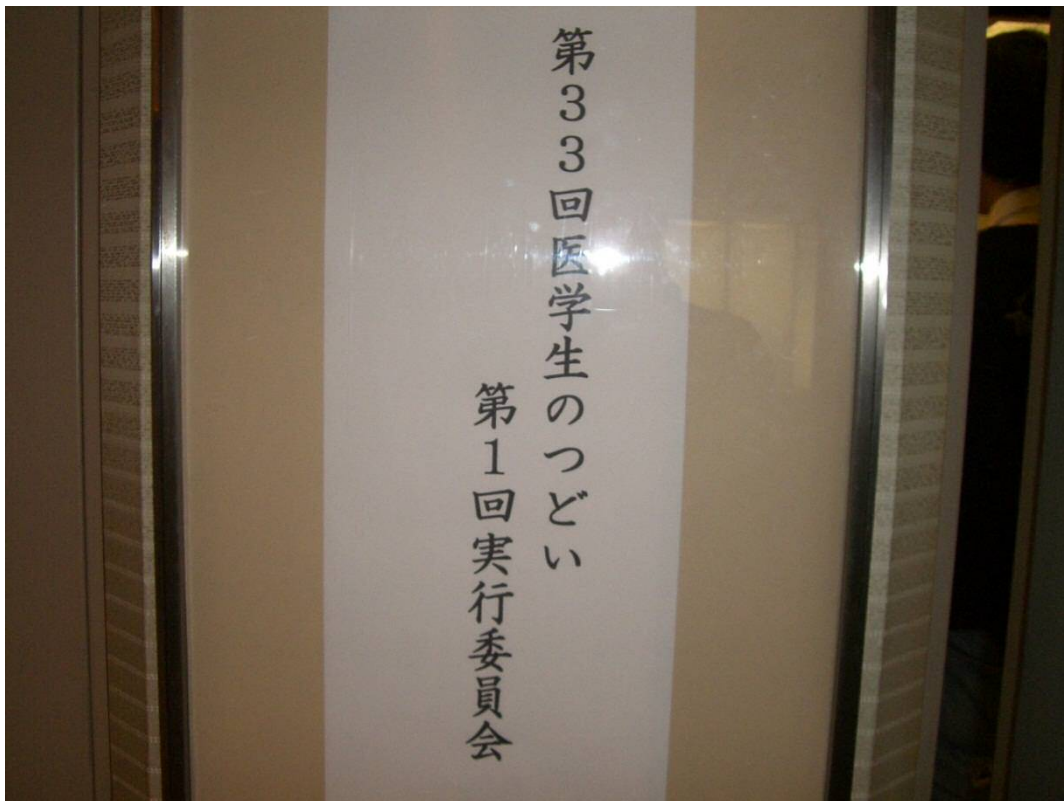 第33回医学生のつどい
第1回実行委員会